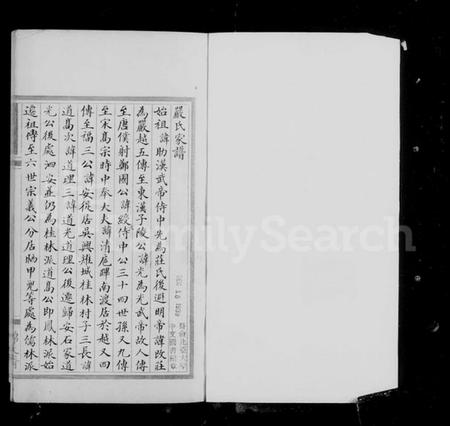 嚴氏家譜
始祖諱助漢武帝侍中先為莊氏後避明帝諱改莊
為嚴越五傳至東漢子陵公諱光為光武帝故人傳
至唐僕射鄭國公諱綬傳中公三十四世孫又九傳
至宋髙宗時中奉大夫諱清扈蹕南渡居於越又四
傳至福三公諱安從居吳興雉城桂林村子三長諱
道髙次諱道理三諱道光道理公後遷歸安石冢道
光公後處泗安並仍為桂林派道髙公即鳳林派始
遷祖傳至六世宗義公分居晒甲兜等處為儒林派
FamilySearch